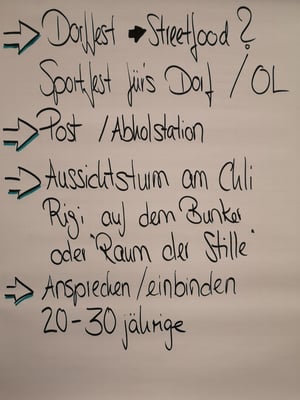 ⇒ Dorffest → Streetfood?
Sportfest für's Dorf / OL
⇒ Post / Abholstation
⇒ Aussichtsturm am Chli
Rigi auf dem Bunker
oder "Raum der Stille"
⇒ Ansprechen / einbinden
20-30 jährige